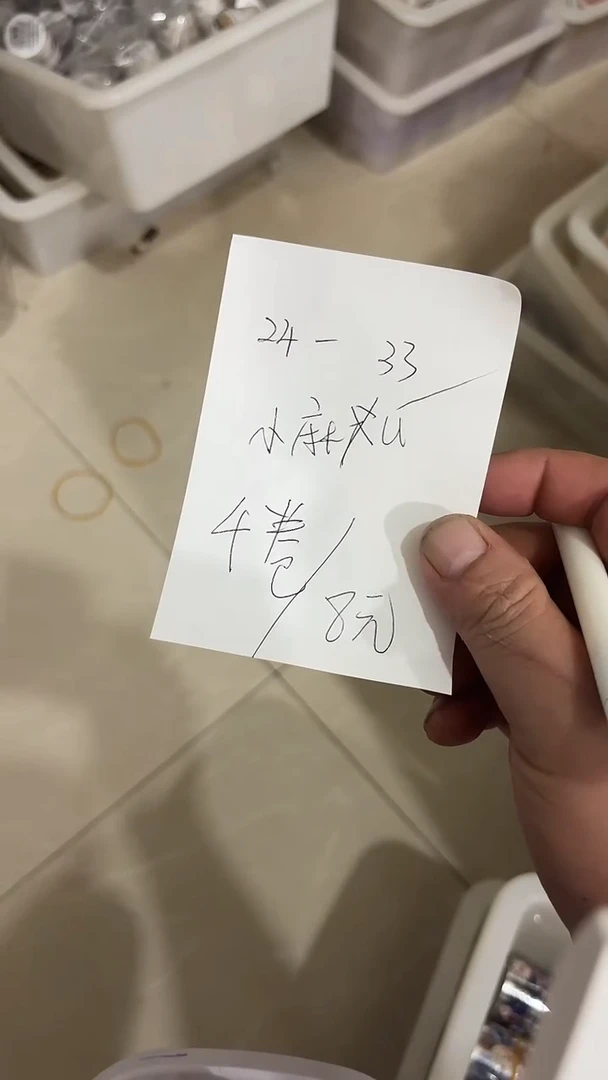 24 - 33
小麻
4卷/8元